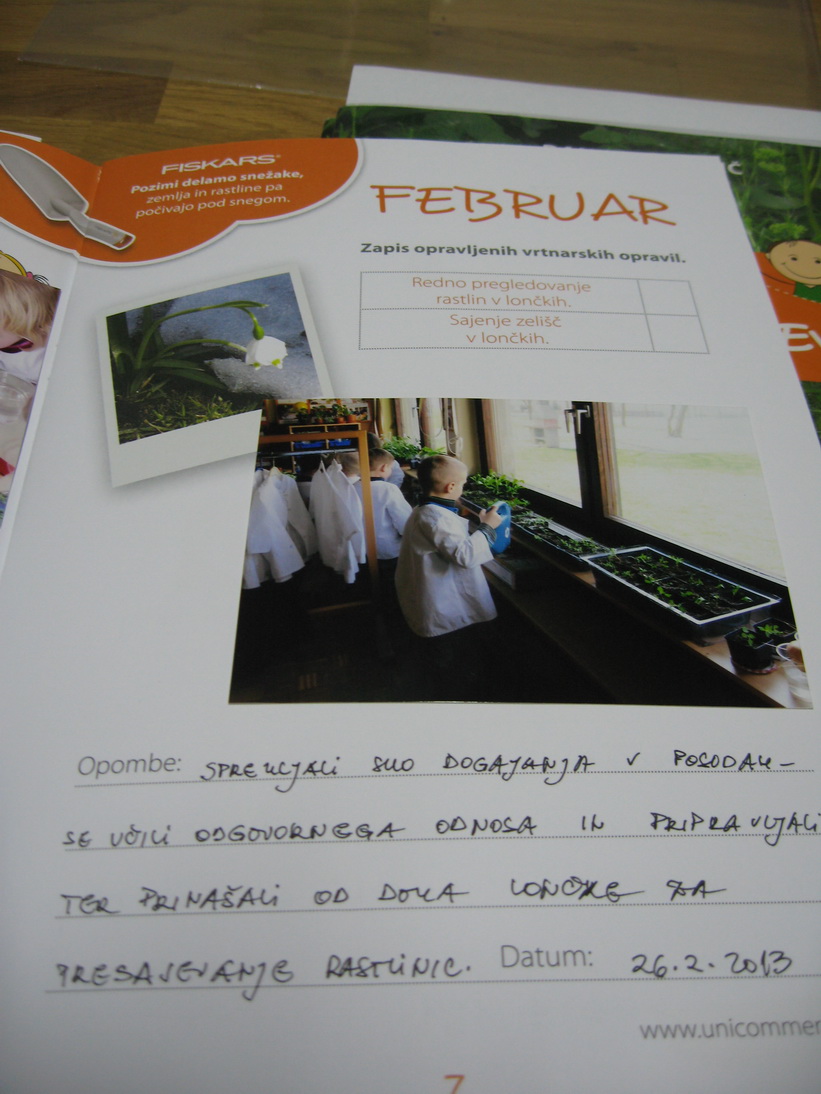 FISKARS®
Pozimi delamo snežake,
zemlja in rastline pa
počivajo pod snegom.
FEBRUAR
Zapis opravljenih vrtnarskih opravil.
Redno pregledovanje
rastlin v lončkih.
Sajenje zelišč
v lončkih.
Opombe: SPREMLJALI SMO DOGAJANJA V POSODAH -
SE UČILI ODGOVORNEGA ODNOSA IN PRIPRAVLJALI
TER PRINAŠALI OD DOMA LONČKE ZA
PRESAJEVANJE RASTLINIC. Datum: 26.2.2013
www.unicommer
7